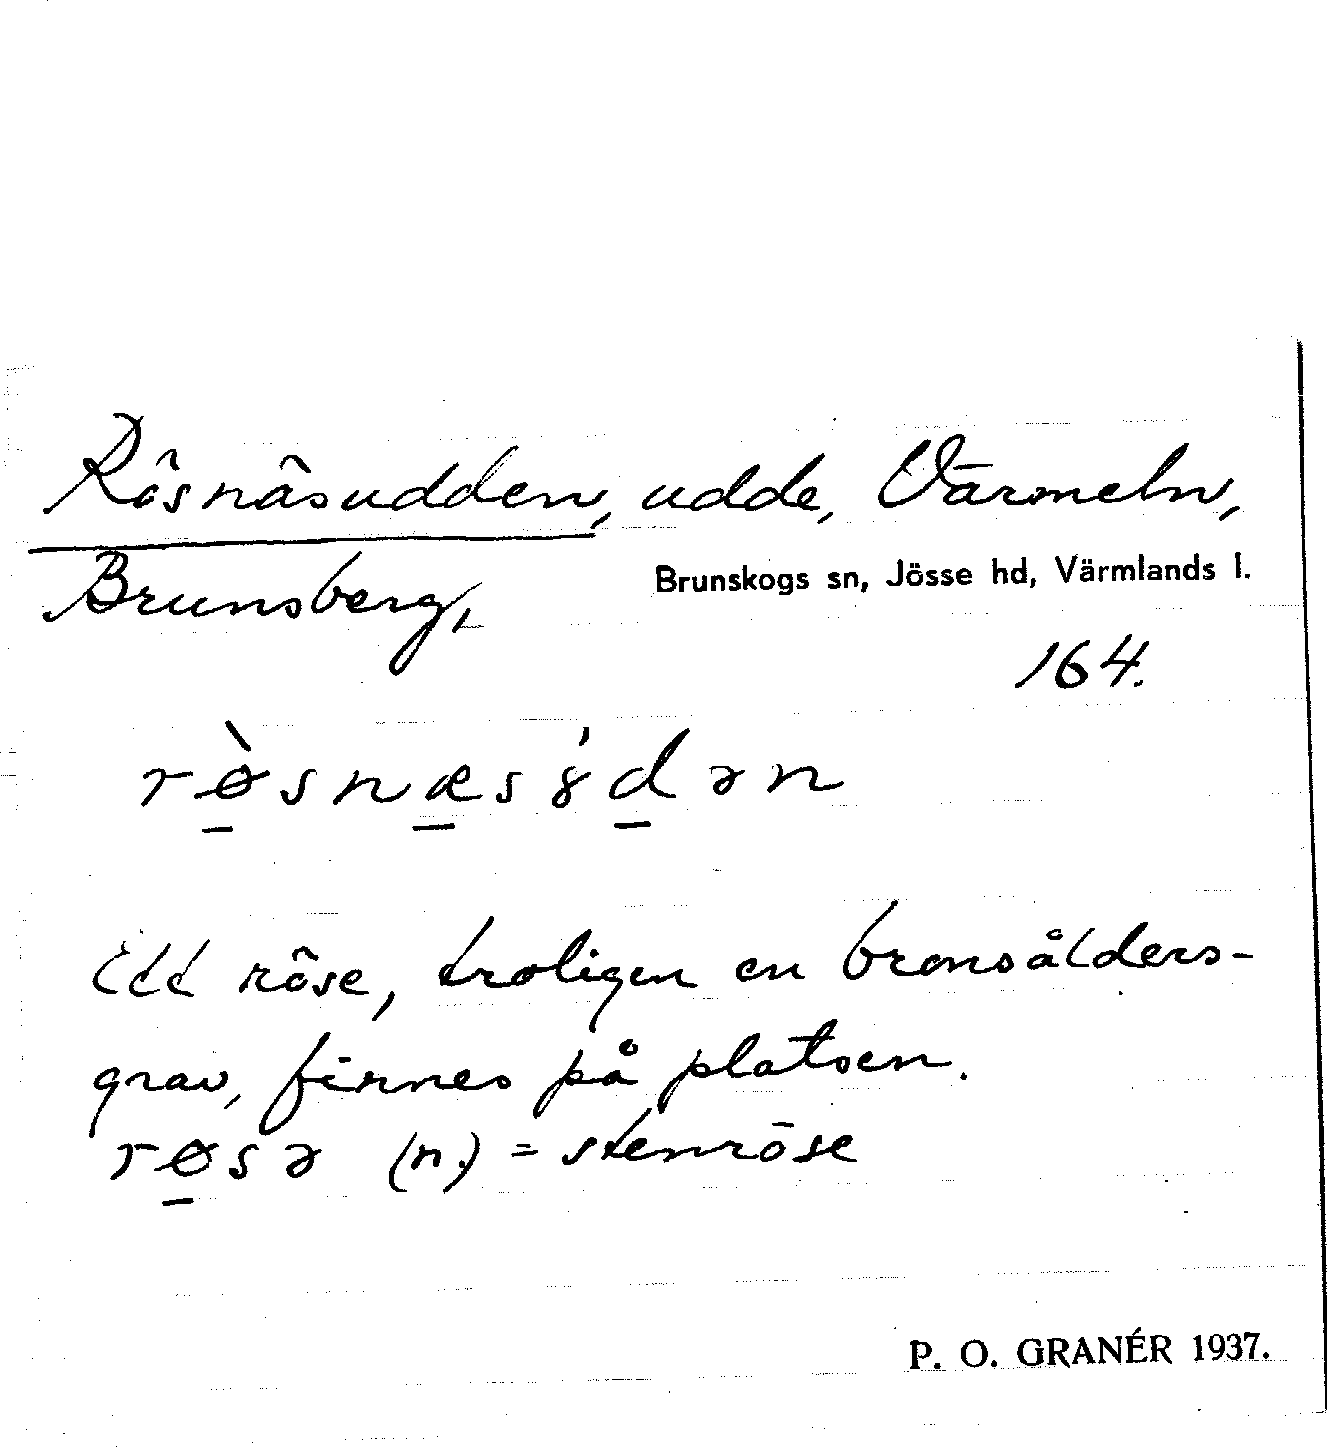 Rösnäsudden, udde, Värmeln,
Brunsberg, Brunskogs sn, Jösse hd, Värmlands l.
164.
rø̠̀snæ̠sɤ́d̠ən
Ett röse, troligen en bronsålders-
grav, finnes på platsen.
rø̠sə (n.) = stenröse
P. O. GRANÉR 1937.